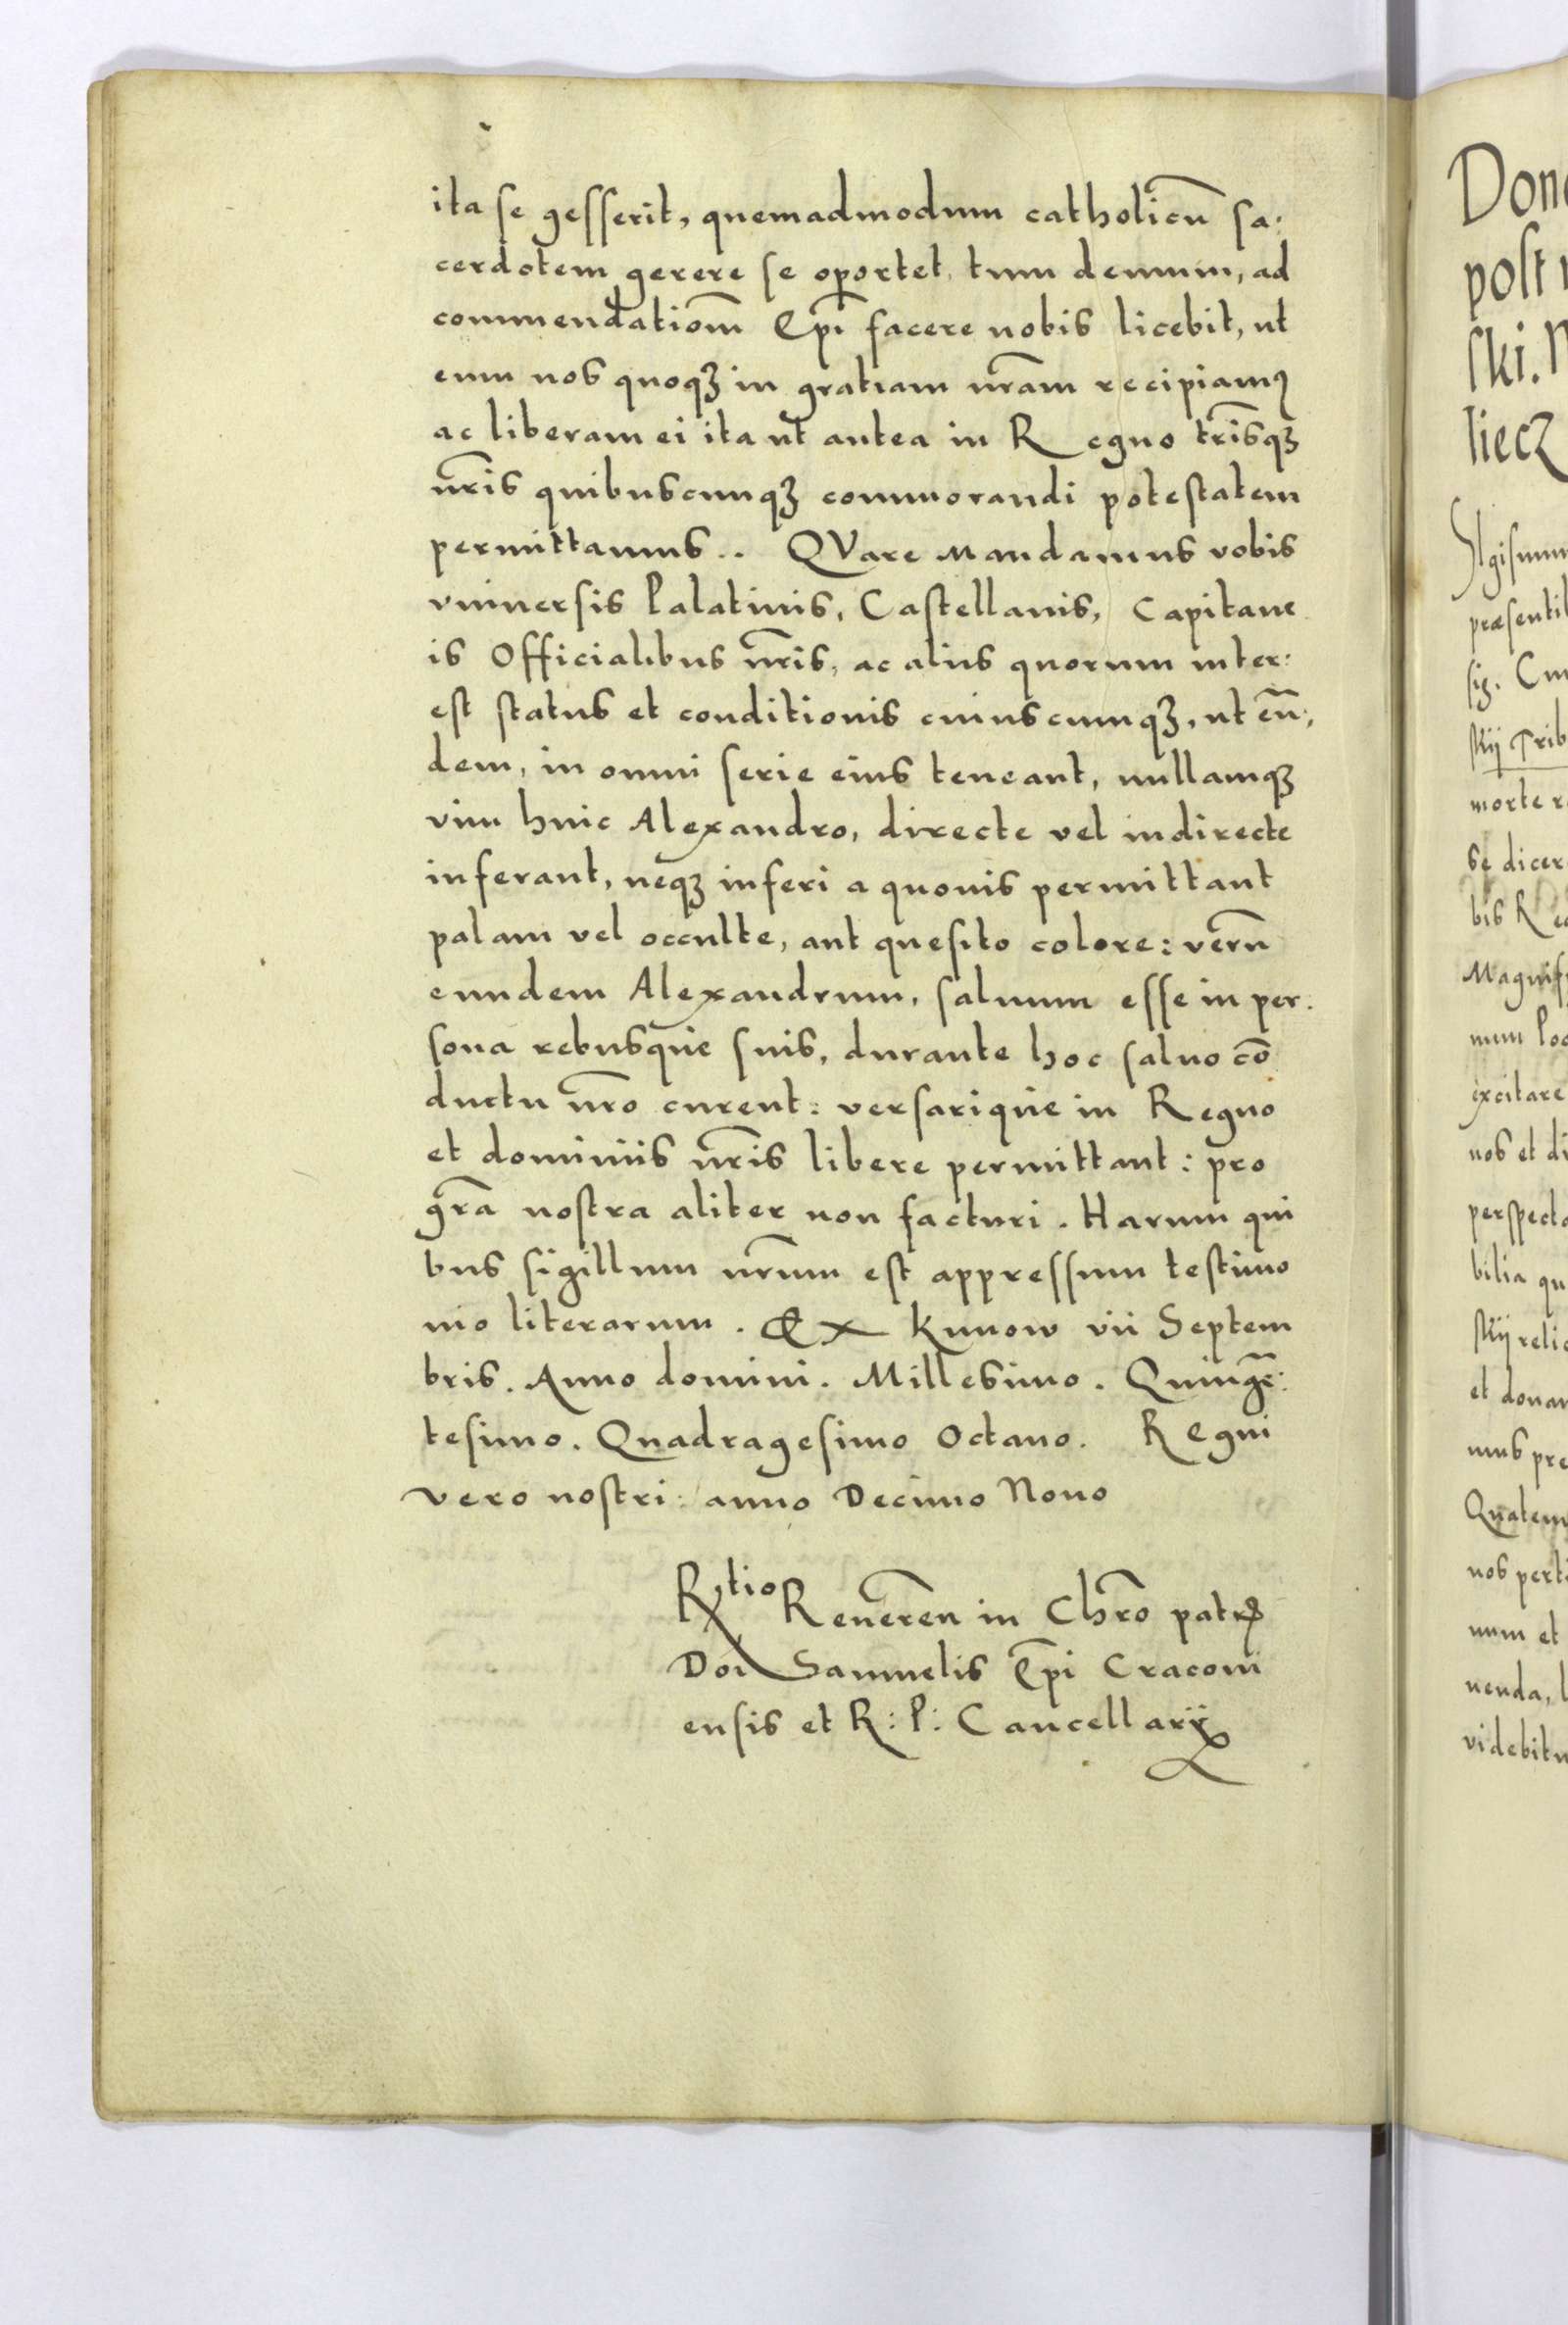 ita se gesserit, quemadmodum catholicū sa:
cerdotem gerere se oportet, tum demum, ad
commendatiom̄ Ep̄i facere nobis licebit, ut
eum nos quoqꝫ in gratiam nr̄am recipiamꝰ
ac liberam ei ita ut antea in Regno tr̄isqꝫ
nr̄is quibuscumqꝫ commorandi potestatem
permittamus.. QVare Mandamus vobis
vniuersis Palatinis, Castellanis, Capitane
is Officialibus nr̄is, ac aliis quorum inter:
est status et conditionis cuiuscumqꝫ, ut eū:,
dem, in omni serie eius teneant, nullamqꝫ
vim huic Alexandro, directe vel indirecte
inferant, neqꝫ inferi a quouis permittant
palam vel occulte, aut quesito colore: verū
eundem Alexandrum, saluum esse in per.
sona rebusque suis, durante hoc saluo cō
ductu nr̄o curent: versarique in Regno
et dominiis nr̄is libere permittant: pro
gr̄a nostra aliter non facturi. Harum qui
bus sigillum nr̄um est appressum testimo
nio literarum. Ex Kunow vii Septem
bris. Anno domini. Millesimo. Quingē:
tesimo. Quadragesimo Octauo. Regni
vero nostri: anno Decimo Nono
Rtio Reueren̄ in Chr̄o patris
Doi Samuelis Ep̄i Cracoui
ensis et R: P: Cancellarij
Don
post
ski.
liecz
præsenti
sig. Cu
skij Trib
morte r
se dicer
bis Re
Magnif
num
excitare
nos et di
perspect
bilia qu
skij reli
et donan
mus pre
Quatem
nos pert
num et
nenda,
videbitu